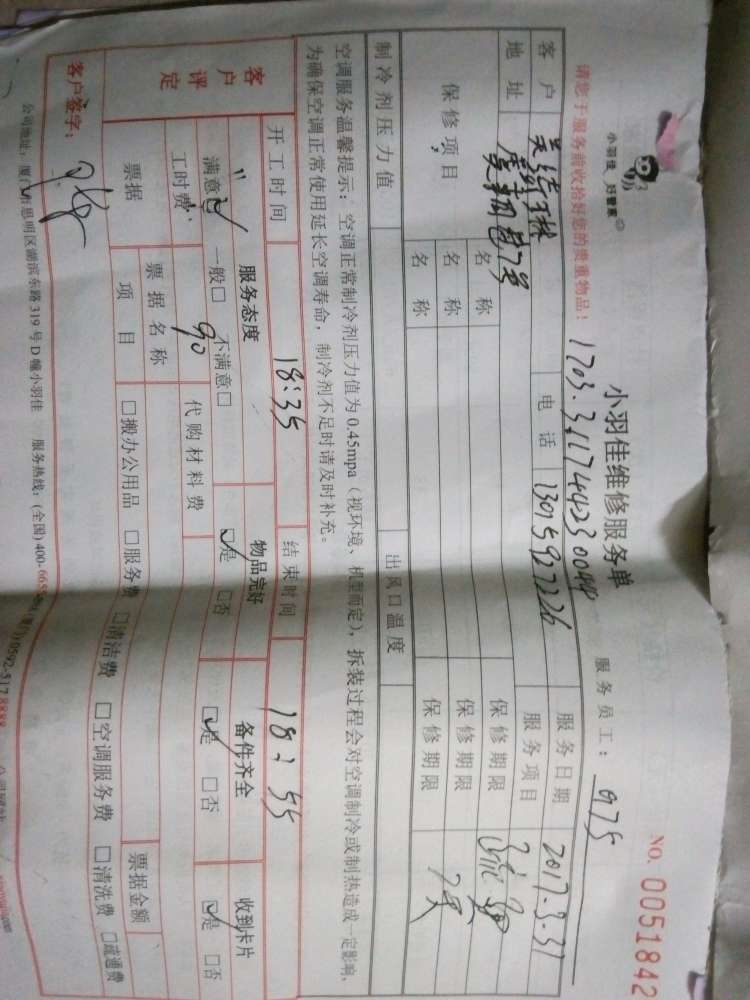 小羽佳 好管家
请您于服务前收拾好您的贵重物品!
小羽佳维修服务单
NO. 0051842
服务员工: 975
客户
电话 13015927226
服务日期 2017-3-31
地址
服务项目
保修项目
名称
保修期限
名称
保修期限 7天
名称
保修期限
制冷剂压力值
出风口温度
空调服务温馨提示: 空调正常制冷剂压力值为0.45mpa(视环境、机型而定), 拆装过程会对空调制冷或制热造成一定影响,
为确保空调正常使用延长空调寿命, 制冷剂不足时请及时补充。
客户评定
开工时间 18:35
结束时间 18:55
服务态度
物品完好
备件齐全
收到卡片
满意☑ 一般□ 不满意□
☑是 □否
☑是 □否
☑是 □否
工时费 90
代购材料费
票据
票据名称
票据金额
项目
□搬办公用品 □服务费 □清洁费 □空调服务费 □清洗费 □疏通费
客户签字:
公司地址: 厦门市思明区湖滨东路319号D幢小羽佳 服务热线: (全国) 400-665